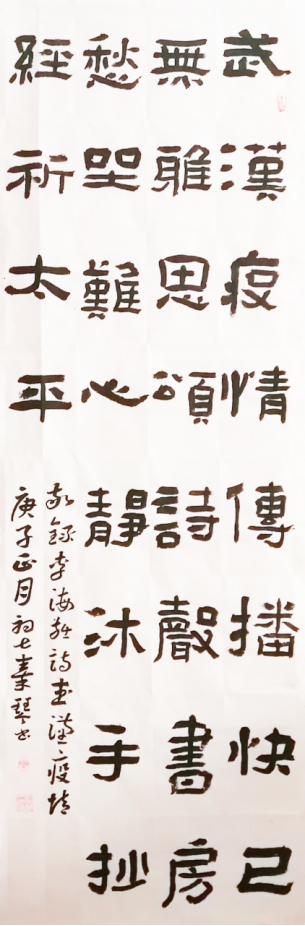 武漢疫情傳播快已
無雅思頌詩聲書房
愁坐難心靜沐手抄
經祈太平
錄李海詩武漢疫情
庚子正月初七秦琴书